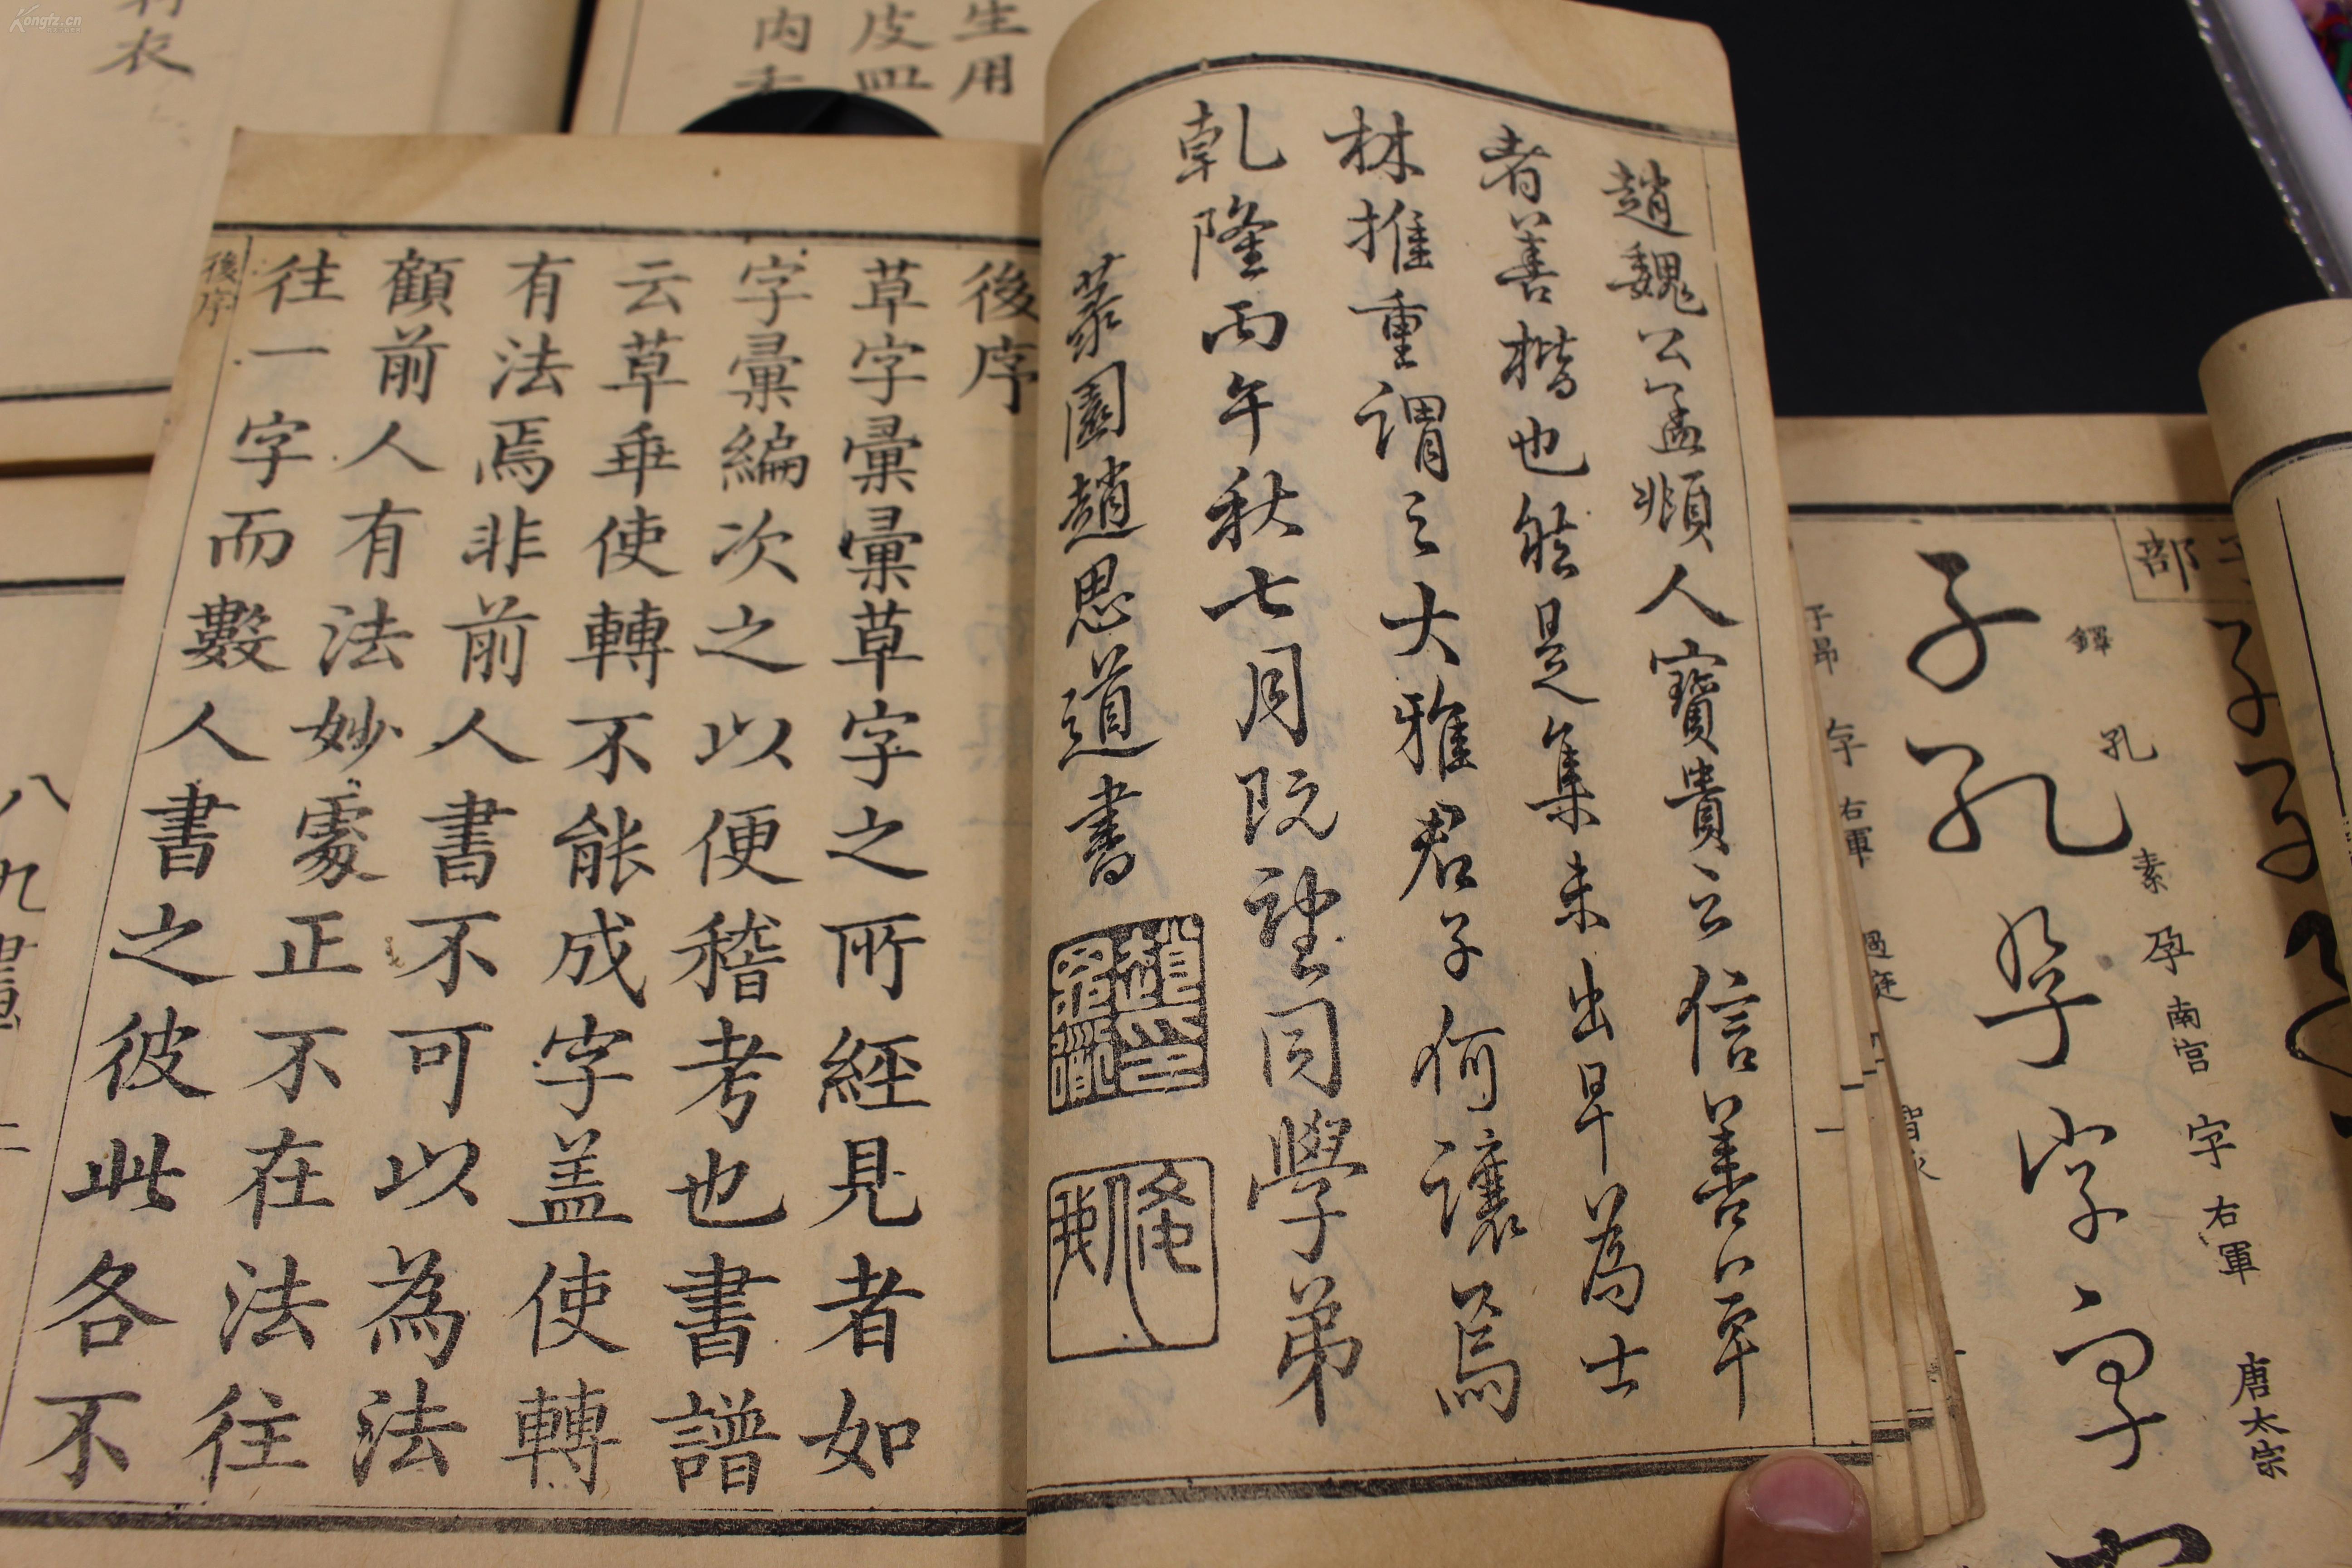 趙魏公孟頫人寶貴云信善草
者善楷也然是集未出早為士
林推重謂之大雅君子何讓焉
乾隆丙午秋七月既望同學弟
菉園趙思道書
後序
草字彙彙草字之所經見者如
字彙編次之以便稽考也書譜
云草乖使轉不能成字盖使轉
有法焉非前人書不可以為法
顧前人有法妙處正不在法往
往一字而數人書之彼此各不
後序
子部
釋
孔
素
孕
南宮
字
右軍
唐太宗
子昂
右軍
生用
皮
肉
衣
八九
Kongfz.cn